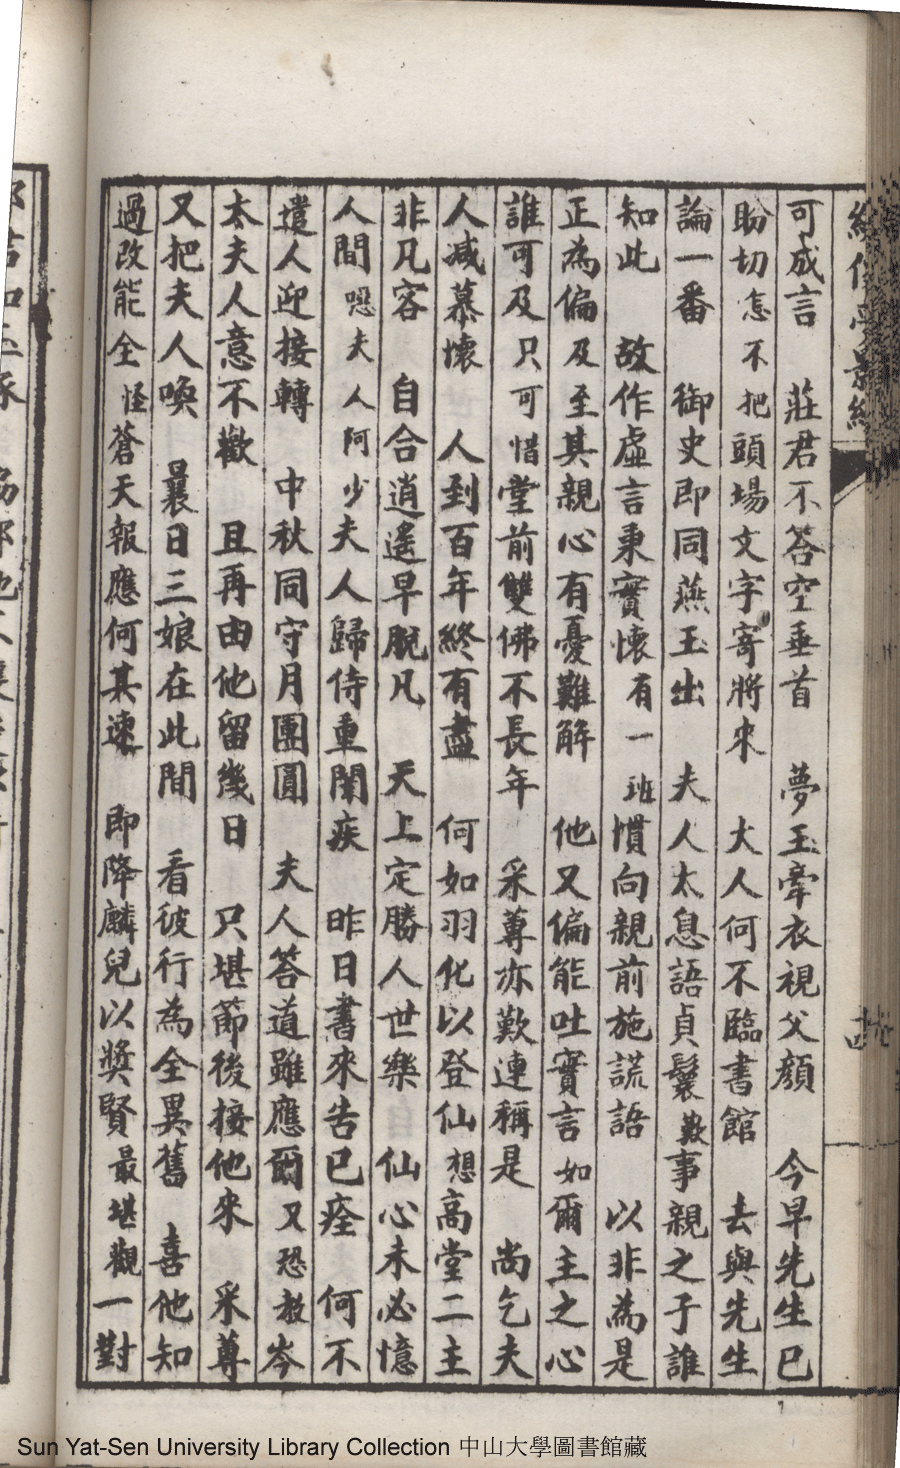 可成言　莊君不答空垂首　夢玉牽衣視父顏　今早先生已
盼切怎不把頭場文字寄將來　大人何不臨書館　去與先生
論一番　御史即同燕玉出　夫人太息語貞鬟歎事親之子誰
知此　故作虛言秉實懷有一班慣向親前施謊語　以非為是
正為偏及至其親心有憂難解　他又偏能吐實言如爾主之心
誰可及只可惜堂前雙佛不長年　采蓴亦歎連稱是　尚乞夫
人減慕懷　人到百年終有盡　何如羽化以登仙想高堂二主
非凡容　自合逍遙早脫凡　天上定勝人世樂　仙心未必憶
人間嗯夫人阿少夫人歸侍重闈疾　昨日書來告已痊　何不
遣人迎接轉　中秋同守月團圓　夫人答道雖應爾又恐教岑
太夫人意不歡　且再由他留幾日　只堪節後接他來　采蓴
又把夫人喚　曩日三娘在此間　看彼行為全異舊　喜他知
過改能全怪蒼天報應何其速　即降麟兒以獎賢最堪觀一對
Sun Yat-Sen University Library Collection 中山大學圖書館藏